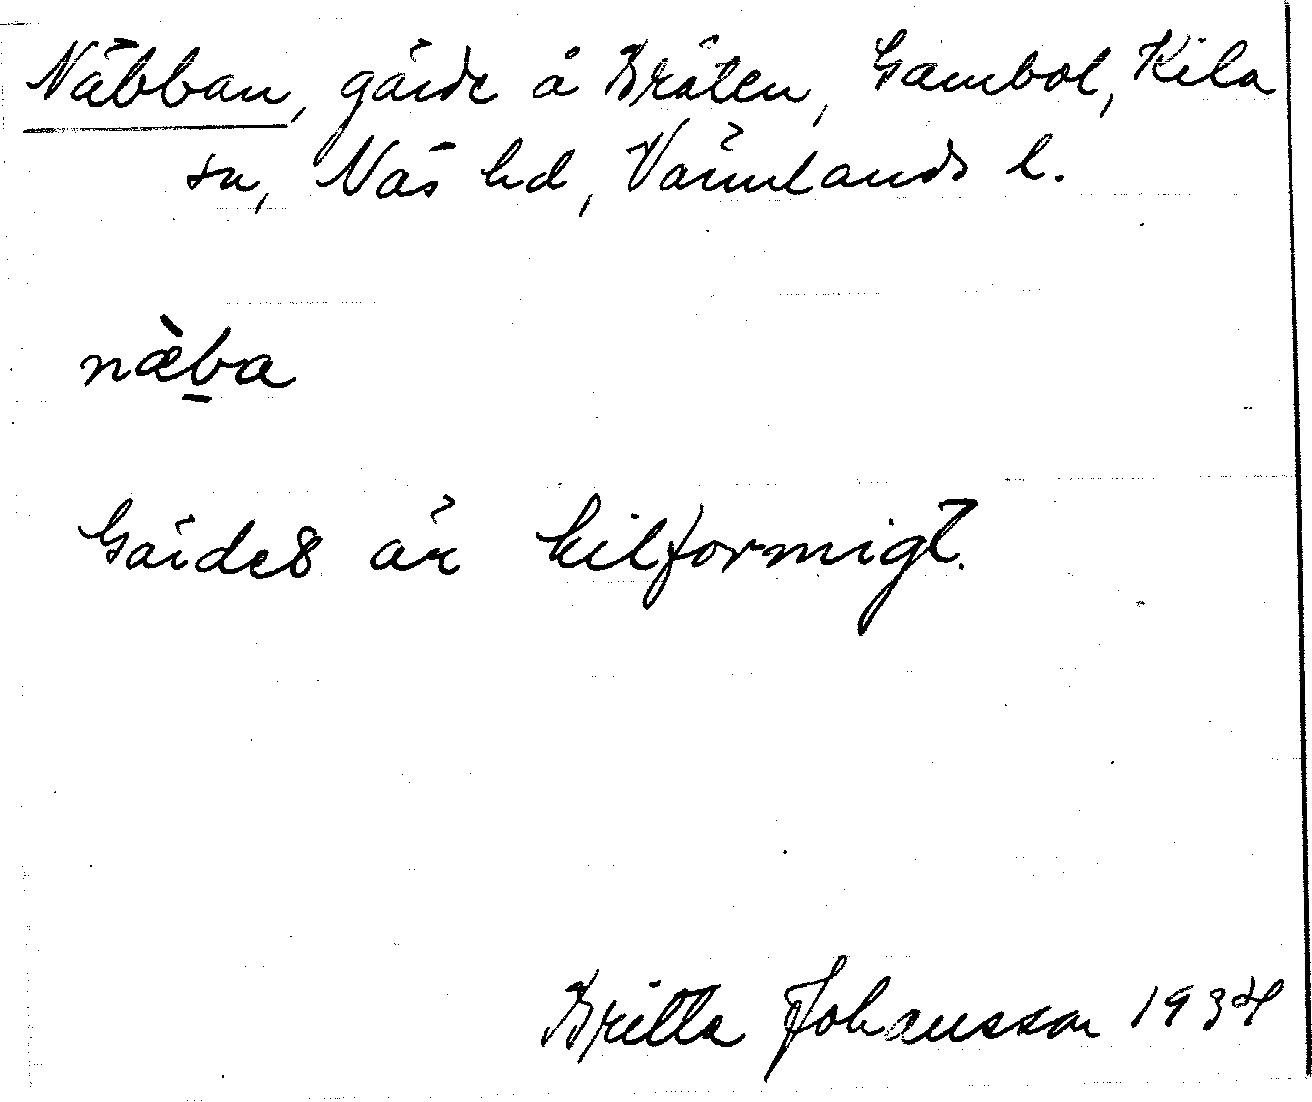 Näbban, gärde å Bråten, Gambol, Kila
sn, Näs hd, Värmlands l.
næ̀b̲a
Gärdet är kilformigt.
Britta Johansson 1934